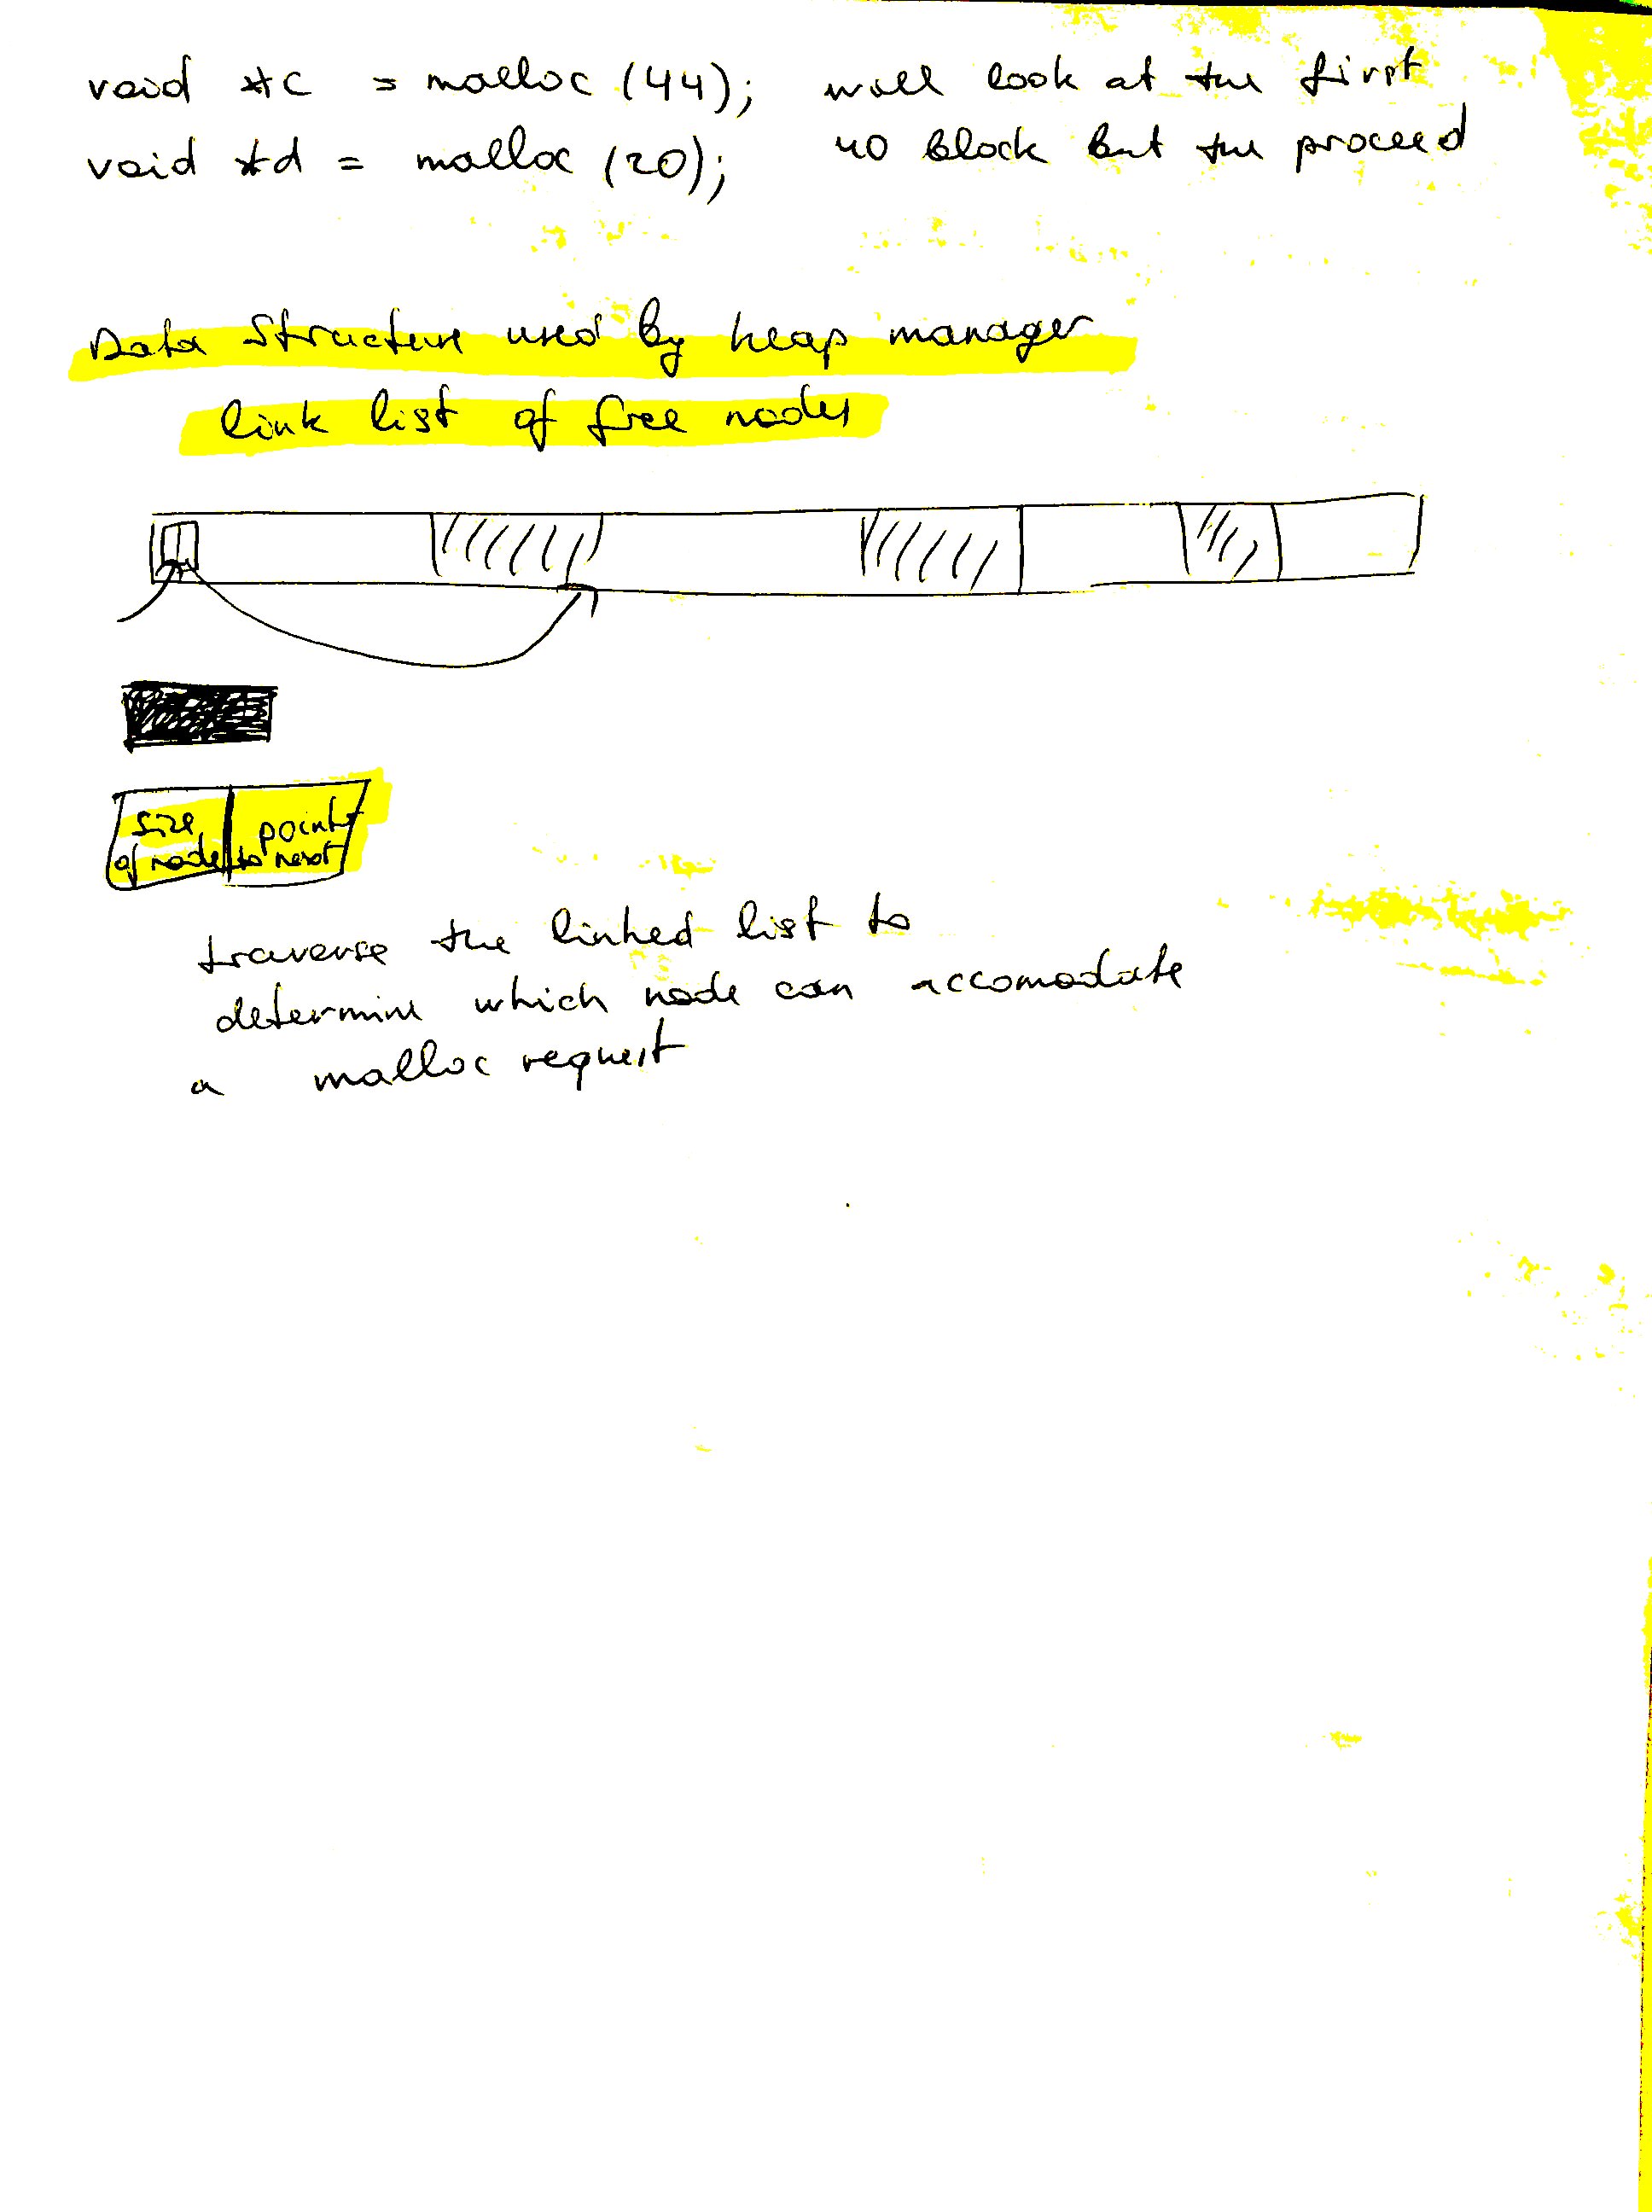 void *c = malloc (44); will look at the first
void *d = malloc (20); 40 block but the proceed
Data Structure used by heap manager
link list of free nodes
size pointer
of node to next
traverse the linked list to
determine which node can accomodate
a malloc request